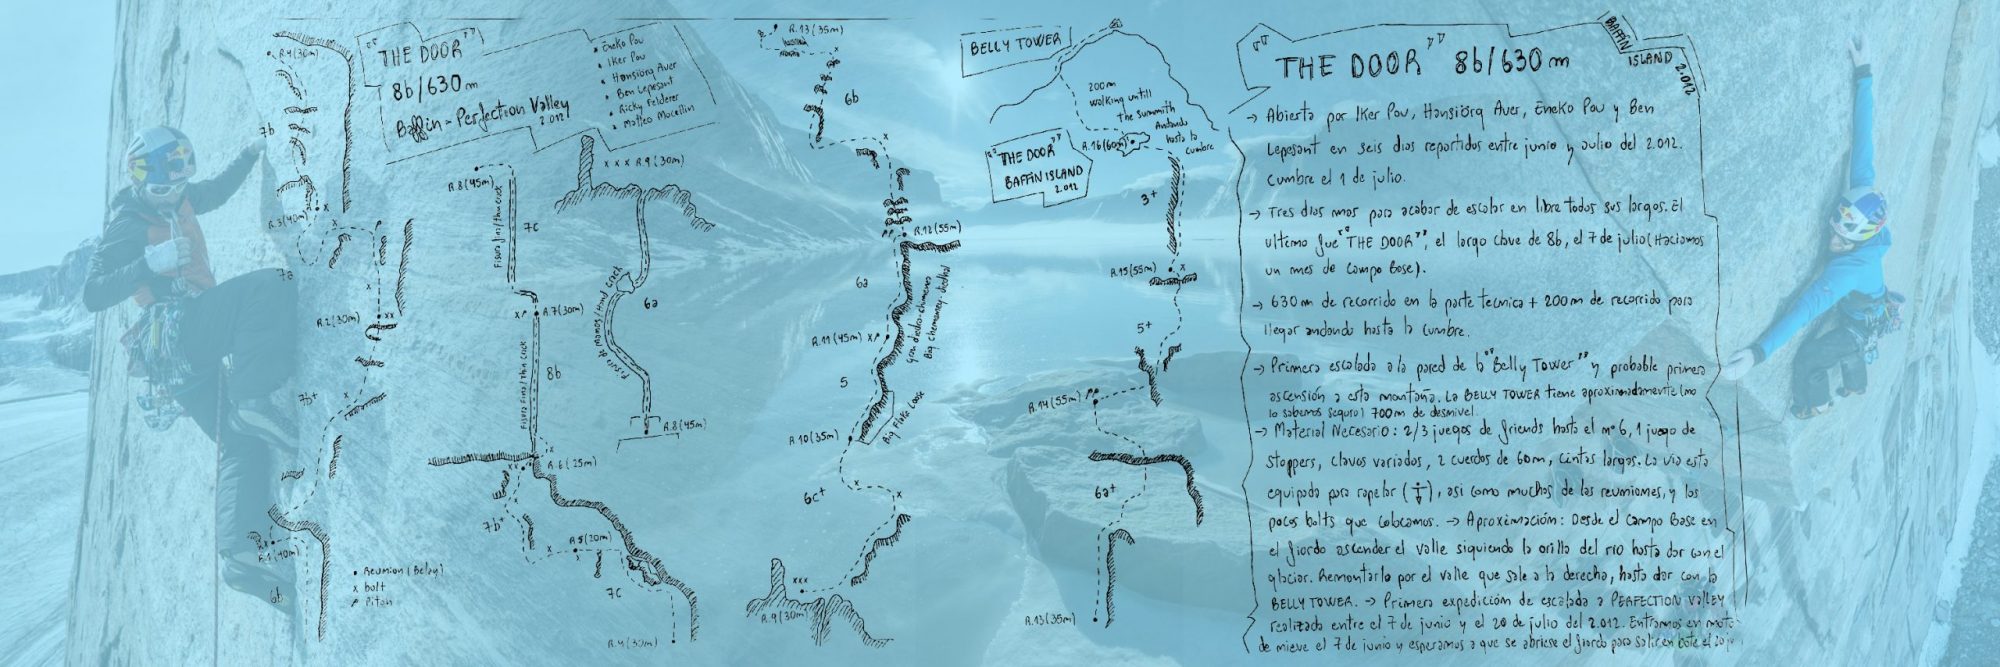 "THE DOOR"
8b/630m
Baffin - Perfection Valley
2.012
• Eneko Pou
• Iker Pou
• Hansiörg Auer
• Ben Lepesant
• Ricky Felderer
• Matteo Mocellin
R.4(30m)
7b
R.3(40m)
7a
R.2(30m)
xx
7b+
R.1(40m)
6b
• Reunion (Belay)
x bolt
Pitón
R.8(45m)
7c
Fisura fina/thin crack
R.7(30m)
8b
Fisura Fina/Thin Crack
R.6(25m)
7b+
R.5(20m)
7c
R.4(30m)
xxx R.9(30m)
6a
Fisura de manos/Hand Crack
R.8(45m)
R.13(35m)
6b
R.12(55m)
6a
Gran diedro-chimenea
Big chemenney dethal
R.11(45m)
5
Big Flake Loose
R.10(35m)
6c+
xxx
R.9(30m)
BELLY TOWER
200m
walking untill
the summith
Andando
hasta la
cumbre
"THE DOOR"
BAFFIN ISLAND
2.012
R.16(60m)
3+
R.15(55m)
5+
R.14(55m)
6a+
R.13(35m)
"THE DOOR" 8b/630m
BAFFIN
ISLAND
2.012
→ Abierta por Iker Pou, Hansiörg Auer, Eneko Pou y Ben
Lepesant en seis dias repartidos entre junio y Julio del 2.012.
Cumbre el 1 de julio.
→ Tres dias mas para acabar de escalar en libre todos sus largos. El
ultimo fue "THE DOOR", el largo clave de 8b, el 7 de julio (Haciamos
un mes de Campo Base).
→ 630m de recorrido en la parte tecnica + 200m de recorrido para
llegar andando hasta la cumbre.
→ Primera escalada a la pared de la "Belly Tower" y probable primera
ascensión a esta montaña. La BELLY TOWER tiene aproximadamente (no
lo sabemos seguro) 700m de desnivel.
→ Material Necesario: 2/3 juegos de friends hasta el nº 6, 1 juego de
Stoppers, clavos variados, 2 cuerdas de 60m, cintas largas. La via esta
equipada para rapelar, asi como muchas de las reuniones, y los
pocos bolts que colocamos. → Aproximación: Desde el Campo Base en
el fiordo ascender el valle siguiendo la orilla del rio hasta dar con el
glaciar. Remontarlo por el valle que sale a la derecha, hasta dar con la
BELLY TOWER. → Primera expedición de escalada a PERFECTION VALLEY
realizada entre el 7 de junio y el 20 de julio del 2.012. Entramos en moto
de nieve el 7 de junio y esperamos a que se abriese el fiordo para salir en bote el 20